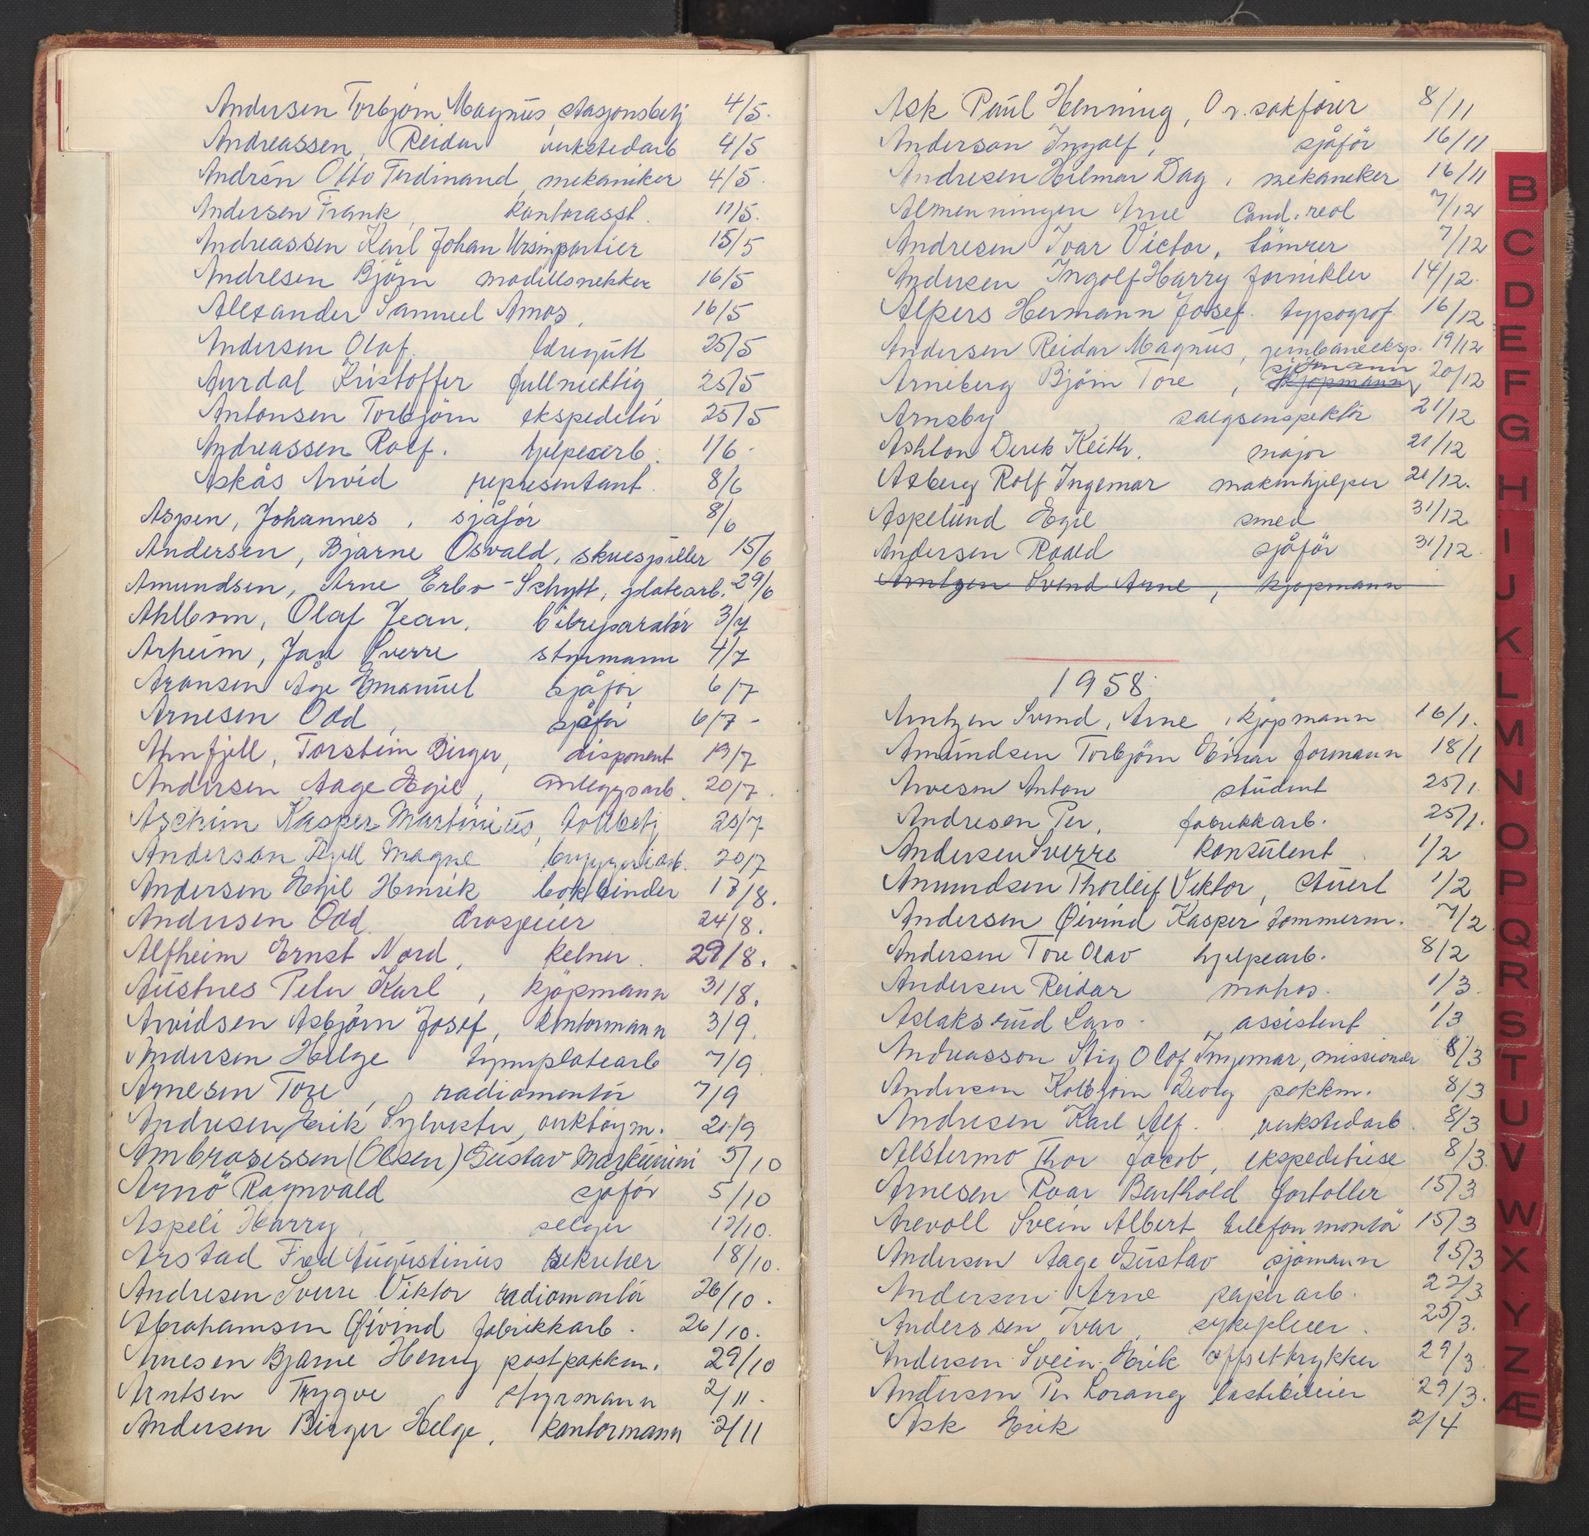 Andersen Torbjørn Magnus, stasjonsbetj 4/5.
Andreassen, Reidar verkstedarb 4/5
Andrén Otto Ferdinand, mekaniker 4/5.
Andersen Frank, kontorasst. 11/5.
Andreassen Karl Johan Ursin portier 15/5
Andresen Bjørn modellsnekker 16/5
Alexander Samuel Amos, 16/5
Andersen Olaf. 25/5
Aurdal Kristoffer fullmektig 25/5
Antonsen Torbjørn ekspeditør 25/5
Andreassen Rolf. hjelpearb. 1/6.
Askås Arvid representant. 8/6
Aspen, Johannes, sjåfør 8/6
Andersen, Bjarne Osvald, skuespiller 15/6
Amundsen, Arne Erbo-Schytt, platearb. 29/6
Ahlbom, Olaf Jean, bilreparatør 3/7
Arheim, Jan Sverre styrmann 4/7
Aronsen Åge Emanuel sjåfør 6/7
Arnesen Odd, sjåfør 6/7-
Ahnfjell, Torstein Birger, disponent 19/7
Andersen Aage Egil, anleggsarb. 20/7.
Aschim Kasper Martinius, tollbetj 20/7
Anderson Kjell Magne bryggeriarb. 20/7
Andersen Egil Henrik bokbinder 17/8.
Andersen Odd drosjeeier 24/8.
Alfheim Ernst Nord, kelner. 29/8.
Austnes Peter Karl, kjøpmann 31/8.
Arvidsen Asbjørn Josef, kontormann 3/9.
Andersen Helge tynnplatearb 7/9
Arnesen Tore, radiomontør 7/9
Andresen Erik Sylvester, verktøym. 21/9
Ambrosessen (Olsen) Gustav 5/10
Arnö Ragnvald sjåfør 5/10
Aspeli Harry, selger 17/10.
Arstad Fred Augustinius sekretær 18/10.
Andresen Sverre Viktor radiomontør 26/10.
Abrahamsen Øivind fabrikkarb. 26/10.
Arnesen Bjarne Henry postpakkm. 29/10
Arntsen Trygve styrmann 2/11.
Andersen Birger Helge, kontormann 2/11
Ask Paul Henning, O.r.sakfører 8/11
Anderson Ingolf, sjåfør 16/11
Andresen Hilmar Dag, mekaneker 16/11
Almenningen Arne Cand. real 7/12
Andresen Ivar Victor, tømrer 7/12
Andersen Ingolf Harry fornikler 14/12.
Alpers Hermann Josef. typograf 16/12
Andersen Reidar Magnus, jernbaneeksp. 19/12
sjømann
Arneberg Bjørn Tore, kjøpmann, 20/12
Arnsby salgsinspektør 21/12
Ashton Derek Keith. major 21/12
Asberg Rolf Ingemar maskinhjelper 21/12.
Aspelund Egil smed 31/12
Andersen Roald sjåfør 31/12.
Arntzen Svend Arne, kjøpmann
1958.
Arntzen Svend, Arne, kjøpmann 16/1.
Amundsen Torbjørn Einar formann 18/1
Arvesen Anton student 25/1.
Andresen Per, fabrikkarb. 25/1.
Andersen Sverre konsulent 1/2
Amundsen Thorleif Viktor, stuert 1/2
Andersen Øivind Kasper tømmerm. 7/2
Andersen Tore Olav hjelpearb. 8/2
Andersen Reidar matros. 1/3
Aslaksrud Lars. assistent 1/3
Andreasson Stig Olof Ingemar, missionær 8/3
Andersen Kolbjørn Georg pakkm. 8/3
Andresen Karl Alf. verkstedarb. 8/3
Alstermo Thor Jacob, ekspeditrise 8/3
Arnesen Roar Berthold fortoller 15/3
Arevoll Svein Albert telefonmontør 15/3
Andersen Aage Gustav sjømann 15/3
Andersen Arne papirarb. 22/3
Anderssen Ivar, sykepleier. 25/3.
Andersen Svein Erik offsettrykker 29/3.
Andersen Per Lorang lastebileier 29/3.
Ask Erik 2/4
B
C
D
E
F
G
H
I
J
K
L
M
N
O
P
Q
R
S
T
U
V
W
X
Y
Z
Æ